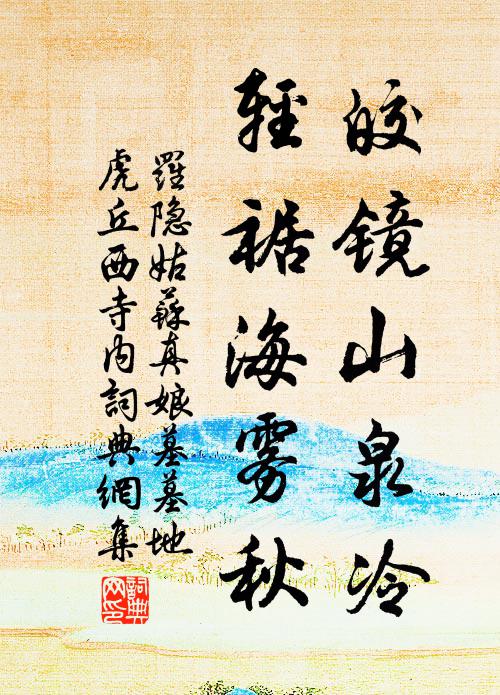 皎镜山泉冷
輕裾海雾秋
羅隐姑蘇真娘墓墓地
虎丘西寺内詞典網集
詞典
网印